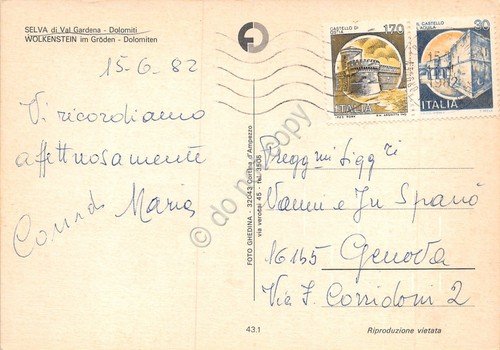 SELVA di Val Gardena - Dolomiti
WOLKENSTEIN im Gröden - Dolomiten
15-6-82
Vi ricordiamo
affettuosamente
Corrado Maria
FOTO GHEDINA - 32043 Cortina d'Ampezzo
via verorai 45 - tel. 3505
43.1
CASTELLO DI
OSTIA
170
ITALIA
CASTELLO
AQUILA
30
ITALIA
Pregg mi Sigg ri
Vanni e Iu Spanò
16145 Genova
Via F. Corridoni 2
Riproduzione vietata
do not copy